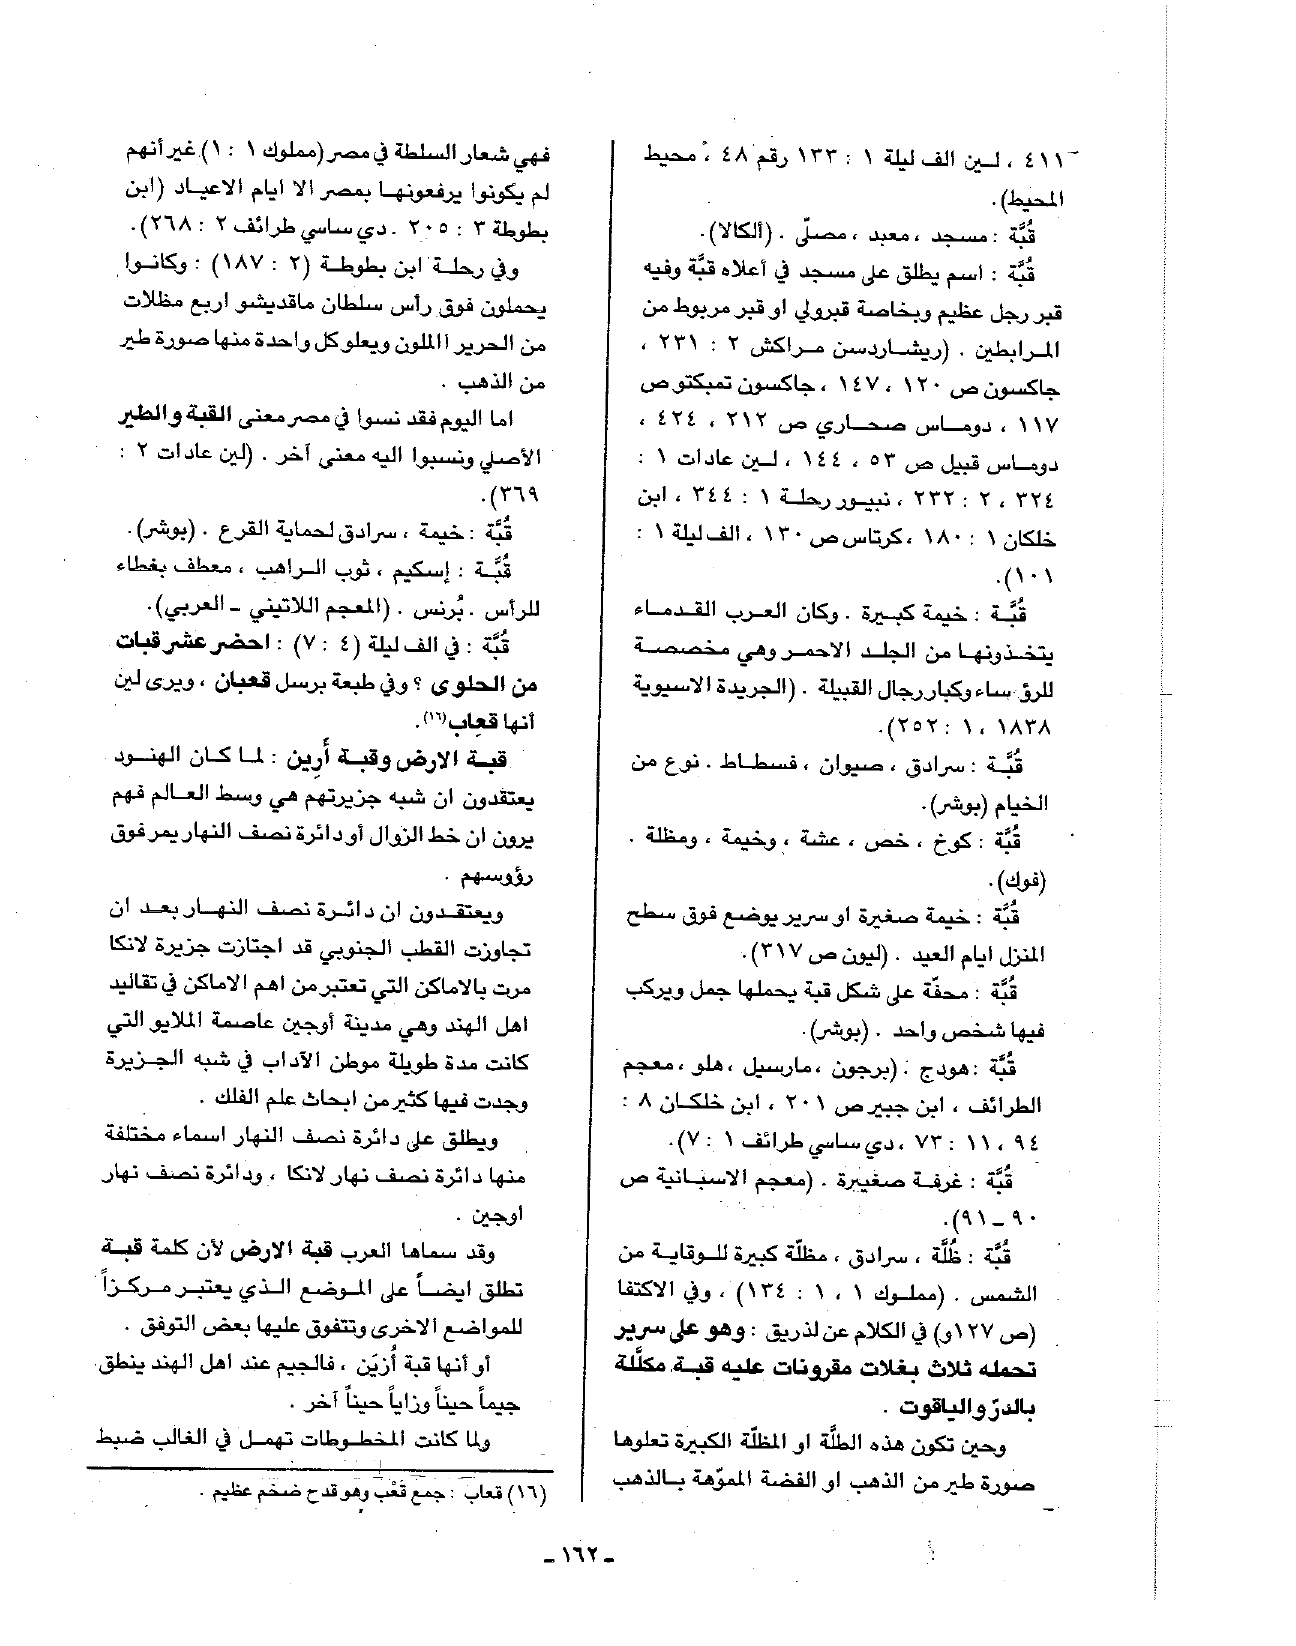 ٤١١ ، لـين الف ليلة ١ : ١٣٣ رقم ٤٨ ، محيط
المحيط).
قُبَّة : مسجد ، معبد ، مصلّى . (ألكالا).
قُبَّة : اسم يطلق على مسجد في أعلاه قبَّة وفيه
قبر رجل عظيم وبخاصة قبرولي او قبر مربوط من
المرابطين . (ريشاردسن مراكش ٢ : ٢٣١ ،
جاكسون ص ١٢٠ ، ١٤٧ ، جاكسون تمبكتو ص
١١٧ ، دوماس صحاري ص ٢١٢ ، ٤٢٤ ،
دوماس قبيل ص ٥٣ ، ١٤٤ ، لـين عادات ١ :
٣٢٤ ، ٢ : ٢٣٢ ، نيبور رحلة ١ : ٣٤٤ ، ابن
خلكان ١ : ١٨٠ ، كرتاس ص ١٣٠ ، الف ليلة ١ :
١٠١).
قُبَّة : خيمة كبيرة . وكان العرب القدماء
يتخذونها من الجلد الاحمر وهي مخصصة
للرؤساء وكبار رجال القبيلة . (الجريدة الاسيوية
١٨٣٨ ، ١ : ٢٥٢).
قُبَّة : سرادق ، صيوان ، فسطاط . نوع من
الخيام (بوشر).
قُبَّة : كوخ ، خص ، عشة ، وخيمة ، ومظلة .
(فوك).
قُبَّة : خيمة صغيرة او سرير يوضع فوق سطح
المنزل ايام العيد . (ليون ص ٣١٧).
قُبَّة : محفّة على شكل قبة يحملها جمل ويركب
فيها شخص واحد . (بوشر).
قُبَّة : هودج . (برجون ، مارسيل ، هلو ، معجم
الطرائف ، ابن جبير ص ٢٠١ ، ابن خلكان ٨ :
٩٤ ، ١١ : ٧٣ ، دي ساسي طرائف ١ : ٧).
قُبَّة : غرفة صغيرة . (معجم الاسبانية ص
٩٠ ـ ٩١).
قُبَّة : ظُلَّة ، سرادق ، مظلّة كبيرة للوقاية من
الشمس . (مملوك ١ ، ١ : ١٣٤) ، وفي الاكتفا
(ص ١٢٧و) في الكلام عن لذريق : وهو على سرير
تحمله ثلاث بغلات مقرونات عليه قبة مكلَّلة
بالدرّ والياقوت .
وحين تكون هذه الظلَّة او المظلّة الكبيرة تعلوها
صورة طير من الذهب او الفضة المموّهة بالذهب
فهي شعار السلطة في مصر (مملوك ١ : ١) غير أنهم
لم يكونوا يرفعونها بمصر الا ايام الاعياد (ابن
بطوطة ٣ : ٢٠٥ . دي ساسي طرائف ٢ : ٢٦٨).
وفي رحلة ابن بطوطة (٢ : ١٨٧) : وكانوا
يحملون فوق رأس سلطان ماقديشو اربع مظلات
من الحرير الملون ويعلو كل واحدة منها صورة طير
من الذهب .
اما اليوم فقد نسوا في مصر معنى القبة والطير
الأصلي ونسبوا اليه معنى آخر . (لين عادات ٢ :
٣٦٩).
قُبَّة : خيمة ، سرادق لحماية القرع . (بوشر).
قُبَّة : إسكيم ، ثوب الراهب ، معطف بغطاء
للرأس . بُرنس . (المعجم اللاتيني - العربي).
قُبَّة : في الف ليلة (٤ : ٧) : احضر عشر قبات
من الحلوى ؟ وفي طبعة برسل قعبان ، ويرى لين
أنها قعاب(١٦).
قبة الارض وقبة أرين : لما كان الهنود
يعتقدون ان شبه جزيرتهم هي وسط العالم فهم
يرون ان خط الزوال أو دائرة نصف النهار يمر فوق
رؤوسهم .
ويعتقدون ان دائرة نصف النهار بعد ان
تجاوزت القطب الجنوبي قد اجتازت جزيرة لانكا
مرت بالاماكن التي تعتبر من اهم الاماكن في تقاليد
اهل الهند وهي مدينة أوجين عاصمة الملايو التي
كانت مدة طويلة موطن الآداب في شبه الجزيرة
وجدت فيها كثير من ابحاث علم الفلك .
ويطلق على دائرة نصف النهار اسماء مختلفة
منها دائرة نصف نهار لانكا ، ودائرة نصف نهار
اوجين .
وقد سماها العرب قبة الارض لأن كلمة قبة
تطلق ايضاً على الموضع الذي يعتبر مركزاً
للمواضع الاخرى وتتفوق عليها بعض التوفق .
أو أنها قبة أُزيَن ، فالجيم عند اهل الهند ينطق
جيماً حيناً وزاياً حيناً آخر .
ولما كانت المخطوطات تهمل في الغالب ضبط
(١٦) قعاب : جمع قَعْب وهو قدح ضخم عظيم .
ـ ١٦٢ ـ